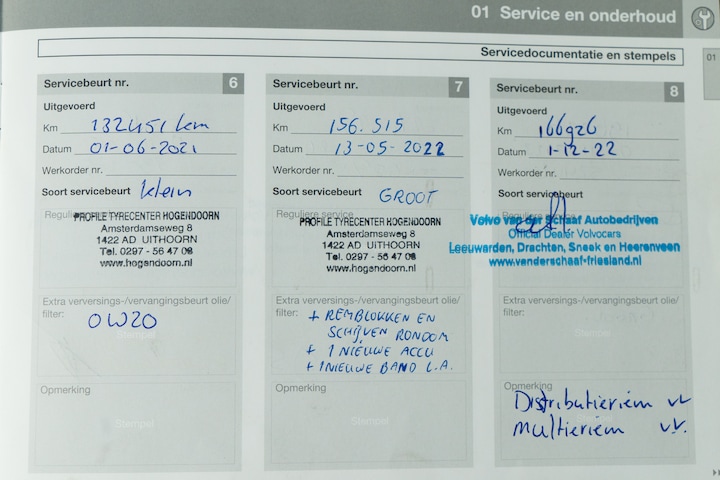 01 Service en onderhoud
Servicedocumentatie en stempels
01
Servicebeurt nr. 6
Uitgevoerd
Km 132451 km
Datum 01-06-2021
Werkorder nr.
Soort servicebeurt klein
Reguliere service
PROFILE TYRECENTER HOGENDOORN
Amsterdamseweg 8
1422 AD UITHOORN
Tel. 0297 - 56 47 08
www.hogendoorn.nl
Extra verversings-/vervangingsbeurt olie/
filter:
0W20
Stempel
Opmerking
Stempel
Servicebeurt nr. 7
Uitgevoerd
Km 156.515
Datum 13-05-2022
Werkorder nr.
Soort servicebeurt GROOT
Reguliere service
PROFILE TYRECENTER HOGENDOORN
Amsterdamseweg 8
1422 AD UITHOORN
Tel. 0297 - 56 47 08
www.hogendoorn.nl
Extra verversings-/vervangingsbeurt olie/
filter:
+ REMBLOKKEN EN
SCHIJVEN RONDOM
+ 1 NIEUWE ACCU
+ 1 NIEUWE BAND L.A.
Opmerking
Stempel
Servicebeurt nr. 8
Uitgevoerd
Km 166926
Datum 1-12-22
Werkorder nr.
Soort servicebeurt
Volvo van der Schaaf Autobedrijven
Official Dealer Volvocars
Leeuwarden, Drachten, Sneek en Heerenveen
www.vanderschaaf-friesland.nl
Extra verversings-/vervangingsbeurt olie/
filter:
Stempel
Opmerking
Distributieriem vv
Multieriem vv.